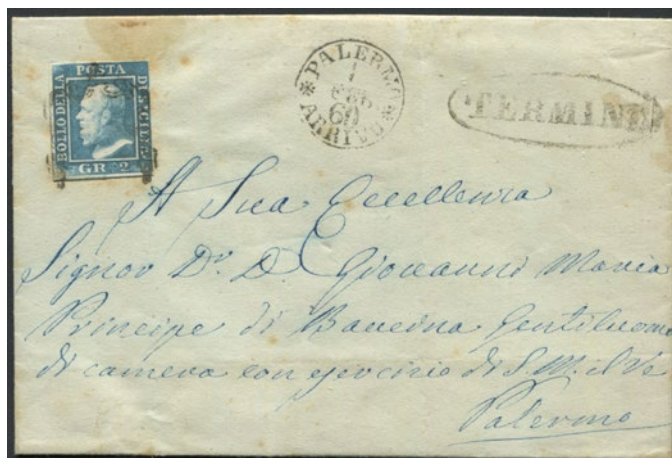 BOLLO DELLA POSTA DI SICILIA
GR 2
PALERMO
1
60
ARRIVO
TERMINI
A Sua Eccellenza
Signor D. D. Giovanni Maria
Principe di Gentiluomo
di camera con esercizio di S. M. il Re
Palermo